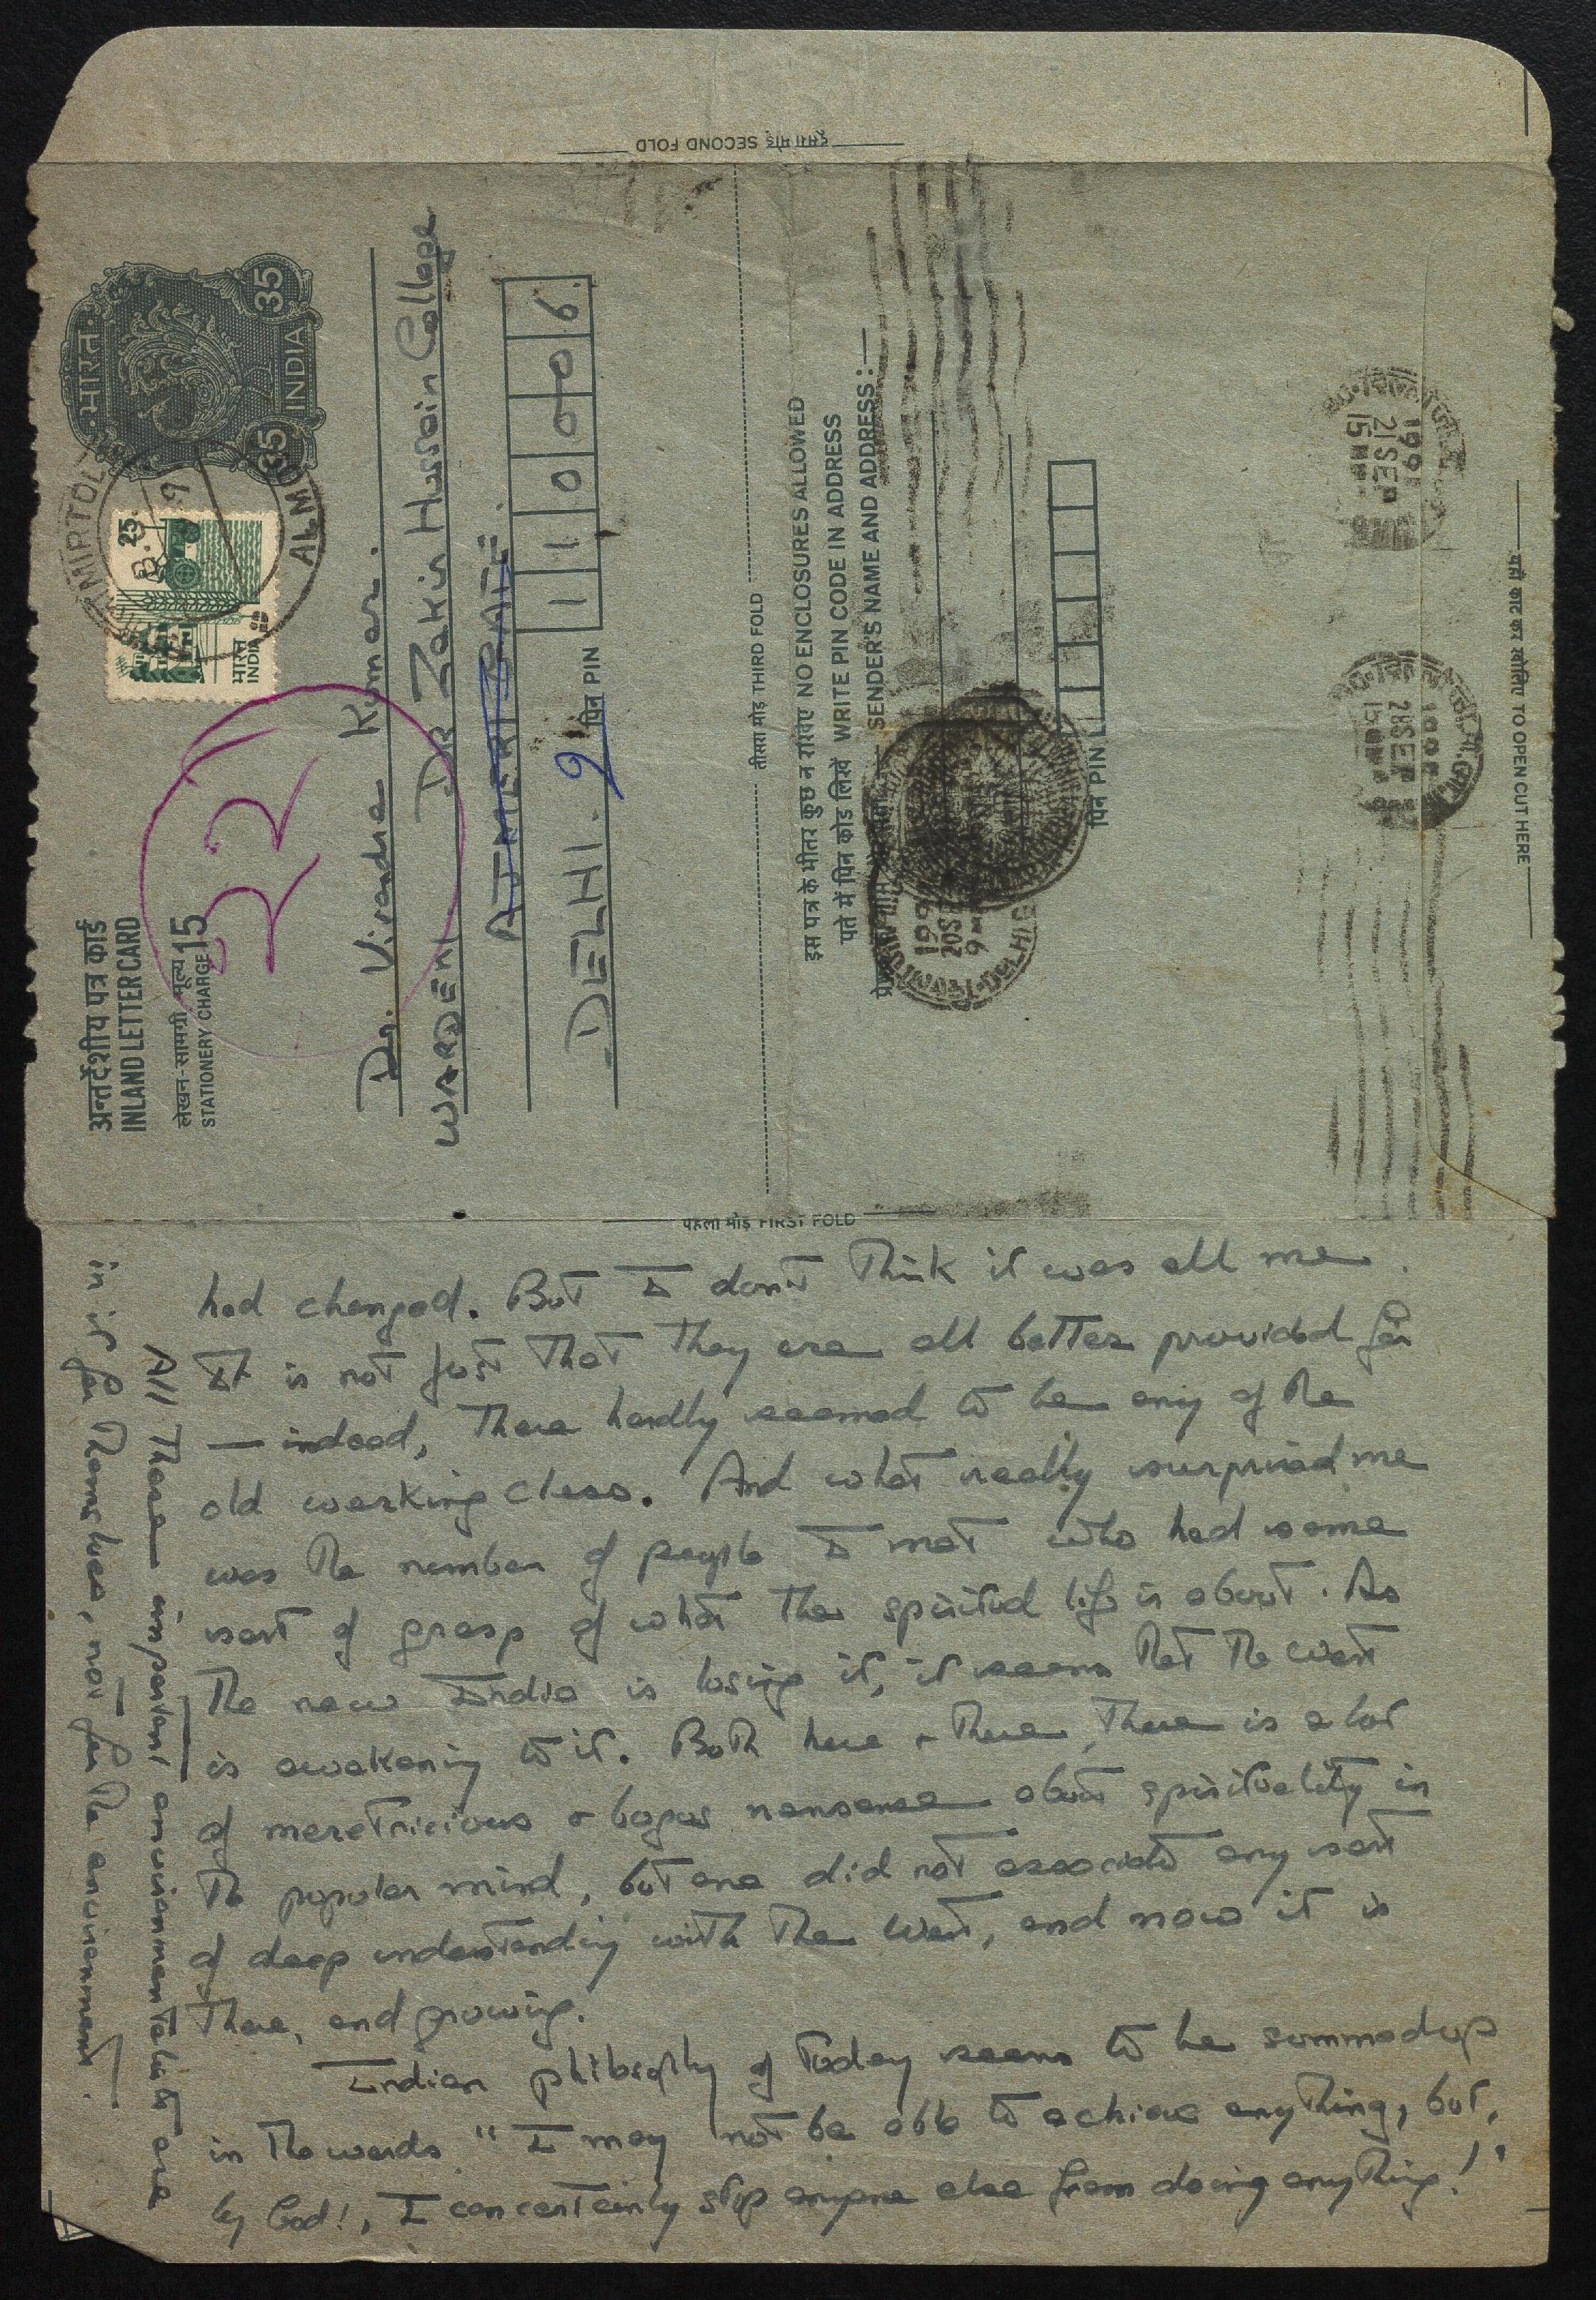 दूसरा मोड़ SECOND FOLD
अन्तर्देशीय पत्र कार्ड
INLAND LETTER CARD
लेखन-सामग्री मूल्य 15
STATIONERY CHARGE
22
भारत
35 35
INDIA
25
भारत
INDIA
MIRTOL
ALMO
Dr. Virendra Kumar.
WARDEN Dr Zakir Hussain College
AJMERI GATE
DELHI. 9
पिन PIN 110006
तीसरा मोड़ THIRD FOLD
इस पत्र के भीतर कुछ न रखिए NO ENCLOSURES ALLOWED
पते में पिन कोड लिखें WRITE PIN CODE IN ADDRESS
SENDER'S NAME AND ADDRESS:—
पिन PIN
20SE
DELHI
1991
21SEP
28SEP
यहाँ काट कर खोलिए TO OPEN CUT HERE
पहला मोड़ FIRST FOLD
had changed. But I don't think it was all me.
It is not just that they are all better provided for
— indeed, there hardly seemed to be any of the
old working class. And what really surprised me
was the number of people I met who had some
sort of grasp of what the spiritual life is about. As
the new India is losing it, it seems that the West
is awakening to it. Both here & there, there is a lot
of meretricious & bogus nonsense about spirituality in
the popular mind, but one did not associate any sort
of deep understanding with the West, and now it is
there, and growing.
Indian philosophy of today seems to be summed up
in the words "I may not be able to achieve anything, but,
by God!, I can certainly stop anyone else from doing anything!"
All these important environmentalists are
in it for themselves, not for the environment.